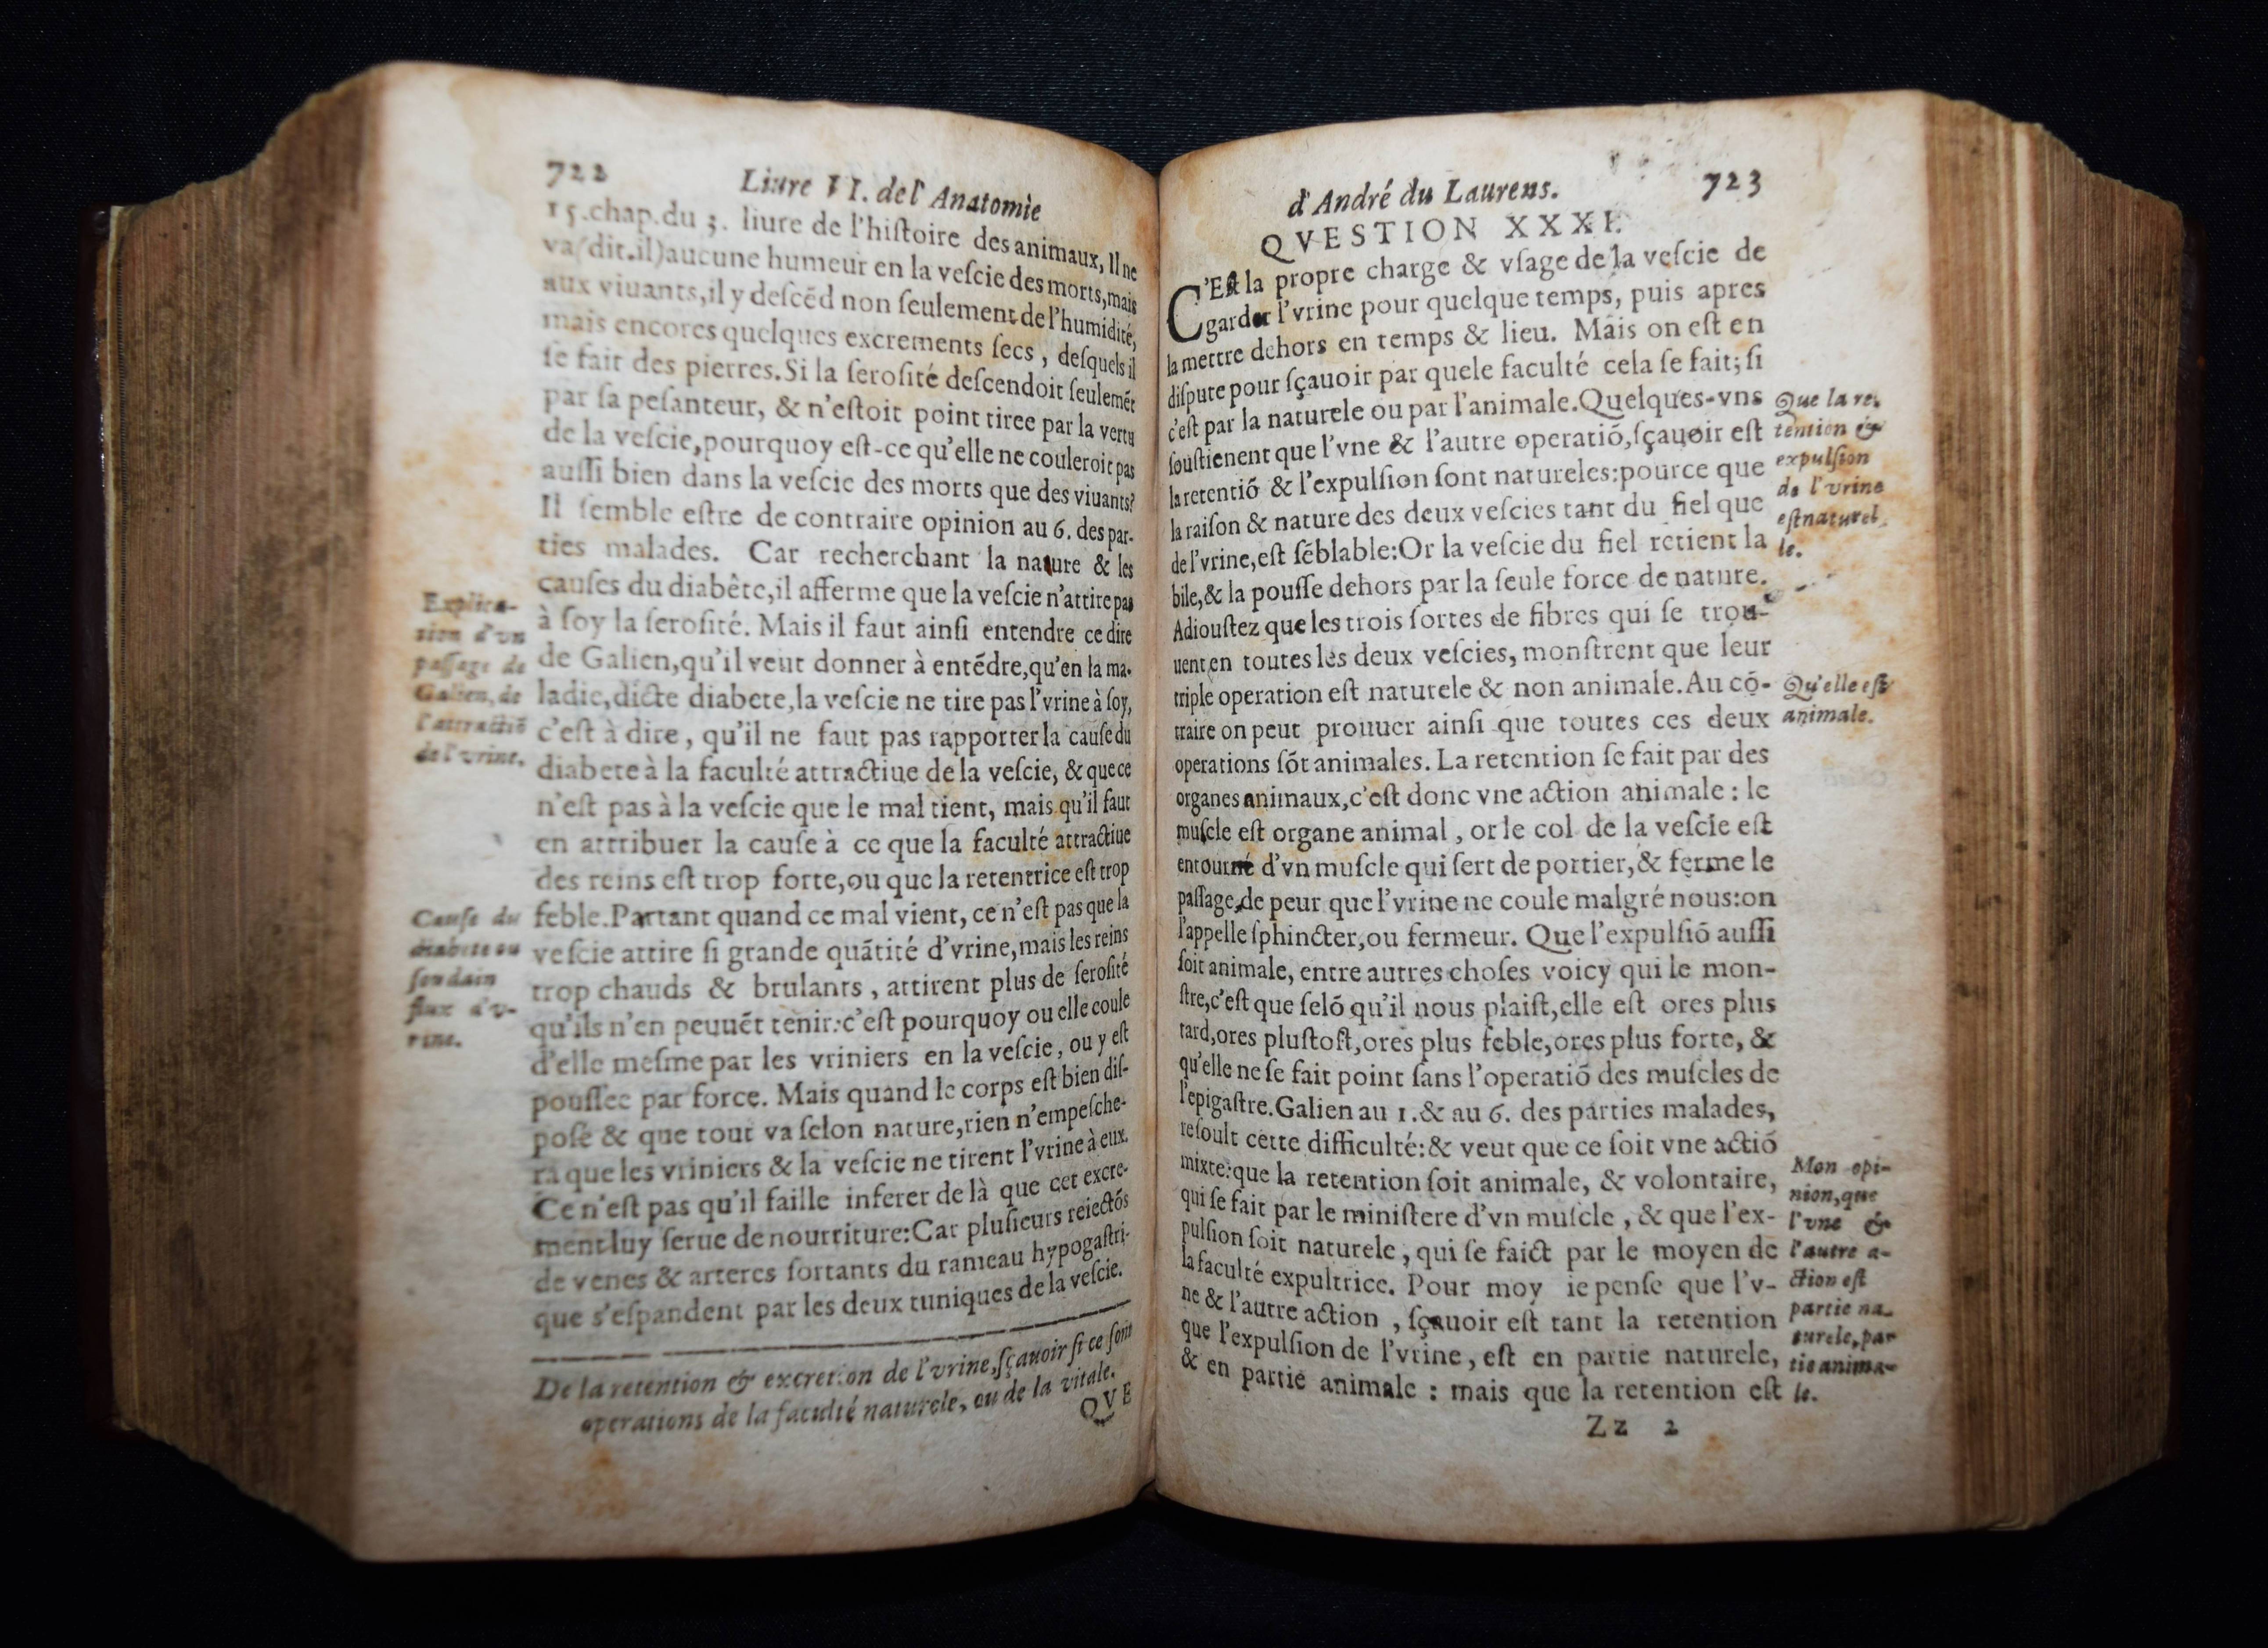 722
Liure VI. de l'Anatomie
15.chap.du 3. liure de l'hiſtoire des animaux, Il ne
va(dit.il)aucune humeur en la veſcie des morts,mais
aux viuants,il y deſcẽd non ſeulement de l'humidité,
mais encores quelques excrements ſecs , deſquels il
ſe fait des pierres.Si la ſeroſité deſcendoit ſeulemẽt
par ſa peſanteur, & n'eſtoit point tiree par la vertu
de la veſcie,pourquoy eſt-ce qu'elle ne couleroit pas
auſſi bien dans la veſcie des morts que des viuants?
Il ſemble eſtre de contraire opinion au 6. des par-
ties malades. Car recherchant la nature & les
cauſes du diabête,il afferme que la veſcie n'attire pas
à ſoy la ſeroſité. Mais il faut ainſi entendre ce dire
de Galien,qu'il veut donner à entẽdre,qu'en la ma-
ladie,dicte diabete,la veſcie ne tire pas l'vrine à ſoy,
c'eſt à dire , qu'il ne faut pas rapporter la cauſe du
diabete à la faculté attractiue de la veſcie, & que ce
n'eſt pas à la veſcie que le mal tient, mais qu'il faut
en attribuer la cauſe à ce que la faculté attractiue
des reins eſt trop forte,ou que la retentrice eſt trop
feble.Partant quand ce mal vient, ce n'eſt pas que la
veſcie attire ſi grande quãtité d'vrine,mais les reins
trop chauds & brulants , attirent plus de ſeroſité
qu'ils n'en peuuẽt tenir:c'eſt pourquoy ou elle coule
d'elle meſme par les vriniers en la veſcie, ou y eſt
pouſſee par force. Mais quand le corps eſt bien diſ-
poſé & que tout va ſelon nature,rien n'empeſche-
ra que les vriniers & la veſcie ne tirent l'vrine à eux.
Ce n'eſt pas qu'il faille inferer de là que cet excre-
ment luy ſerue de nourriture:Car pluſieurs reiectõs
de venes & arteres ſortants du rameau hypogaſtri-
que s'eſpandent par les deux tuniques de la veſcie.
Explica-
tion d'vn
paſſage de
Galien, de
l'attractiõ
de l'vrine.
Cauſe du
diabete ou
ſoudain
flux d'v-
rine.
De la retention & excretion de l'vrine,ſçauoir ſi ce ſont
operations de la faculté naturele, ou de la vitale.
QVE
d'André du Laurens.
723
QVESTION XXXI.
C'Eſt la propre charge & vſage de la veſcie de
garder l'vrine pour quelque temps, puis apres
la mettre dehors en temps & lieu. Mais on eſt en
diſpute pour ſçauoir par quele faculté cela ſe fait; ſi
c'eſt par la naturele ou par l'animale.Quelques-vns
ſouſtienent que l'vne & l'autre operatiõ,ſçauoir eſt
la retentiõ & l'expulſion ſont natureles:pource que
la raiſon & nature des deux veſcies tant du fiel que
de l'vrine,eſt ſẽblable:Or la veſcie du fiel retient la
bile,& la pouſſe dehors par la ſeule force de nature.
Adiouſtez que les trois ſortes de fibres qui ſe trou-
uent en toutes les deux veſcies, monſtrent que leur
triple operation eſt naturele & non animale.Au cõ-
traire on peut prouuer ainſi que toutes ces deux
operations ſõt animales. La retention ſe fait par des
organes animaux,c'eſt donc vne action animale : le
muſcle eſt organe animal , or le col de la veſcie eſt
entourné d'vn muſcle qui ſert de portier,& ferme le
paſſage,de peur que l'vrine ne coule malgré nous:on
l'appelle ſphincter,ou fermeur. Que l'expulſiõ auſſi
ſoit animale, entre autres choſes voicy qui le mon-
ſtre,c'eſt que ſelõ qu'il nous plaiſt,elle eſt ores plus
tard,ores pluſtoſt,ores plus feble,ores plus forte, &
qu'elle ne ſe fait point ſans l'operatiõ des muſcles de
l'epigaſtre.Galien au 1.& au 6. des parties malades,
reſoult cette difficulté:& veut que ce ſoit vne actiõ
mixte:que la retention ſoit animale, & volontaire,
qui ſe fait par le miniſtere d'vn muſcle , & que l'ex-
pulſion ſoit naturele , qui ſe faict par le moyen de
la faculté expultrice. Pour moy ie penſe que l'v-
ne & l'autre action , ſçauoir eſt tant la retention
que l'expulſion de l'vrine, eſt en partie naturele,
& en partie animale : mais que la retention eſt
Que la re-
tention &
expulſion
de l'vrine
eſt naturel-
le.
Qu'elle eſt
animale.
Mon opi-
nion,que
l'vne &
l'autre a-
ction eſt
partie na-
turele, par
tie anima-
le.
Zz 2